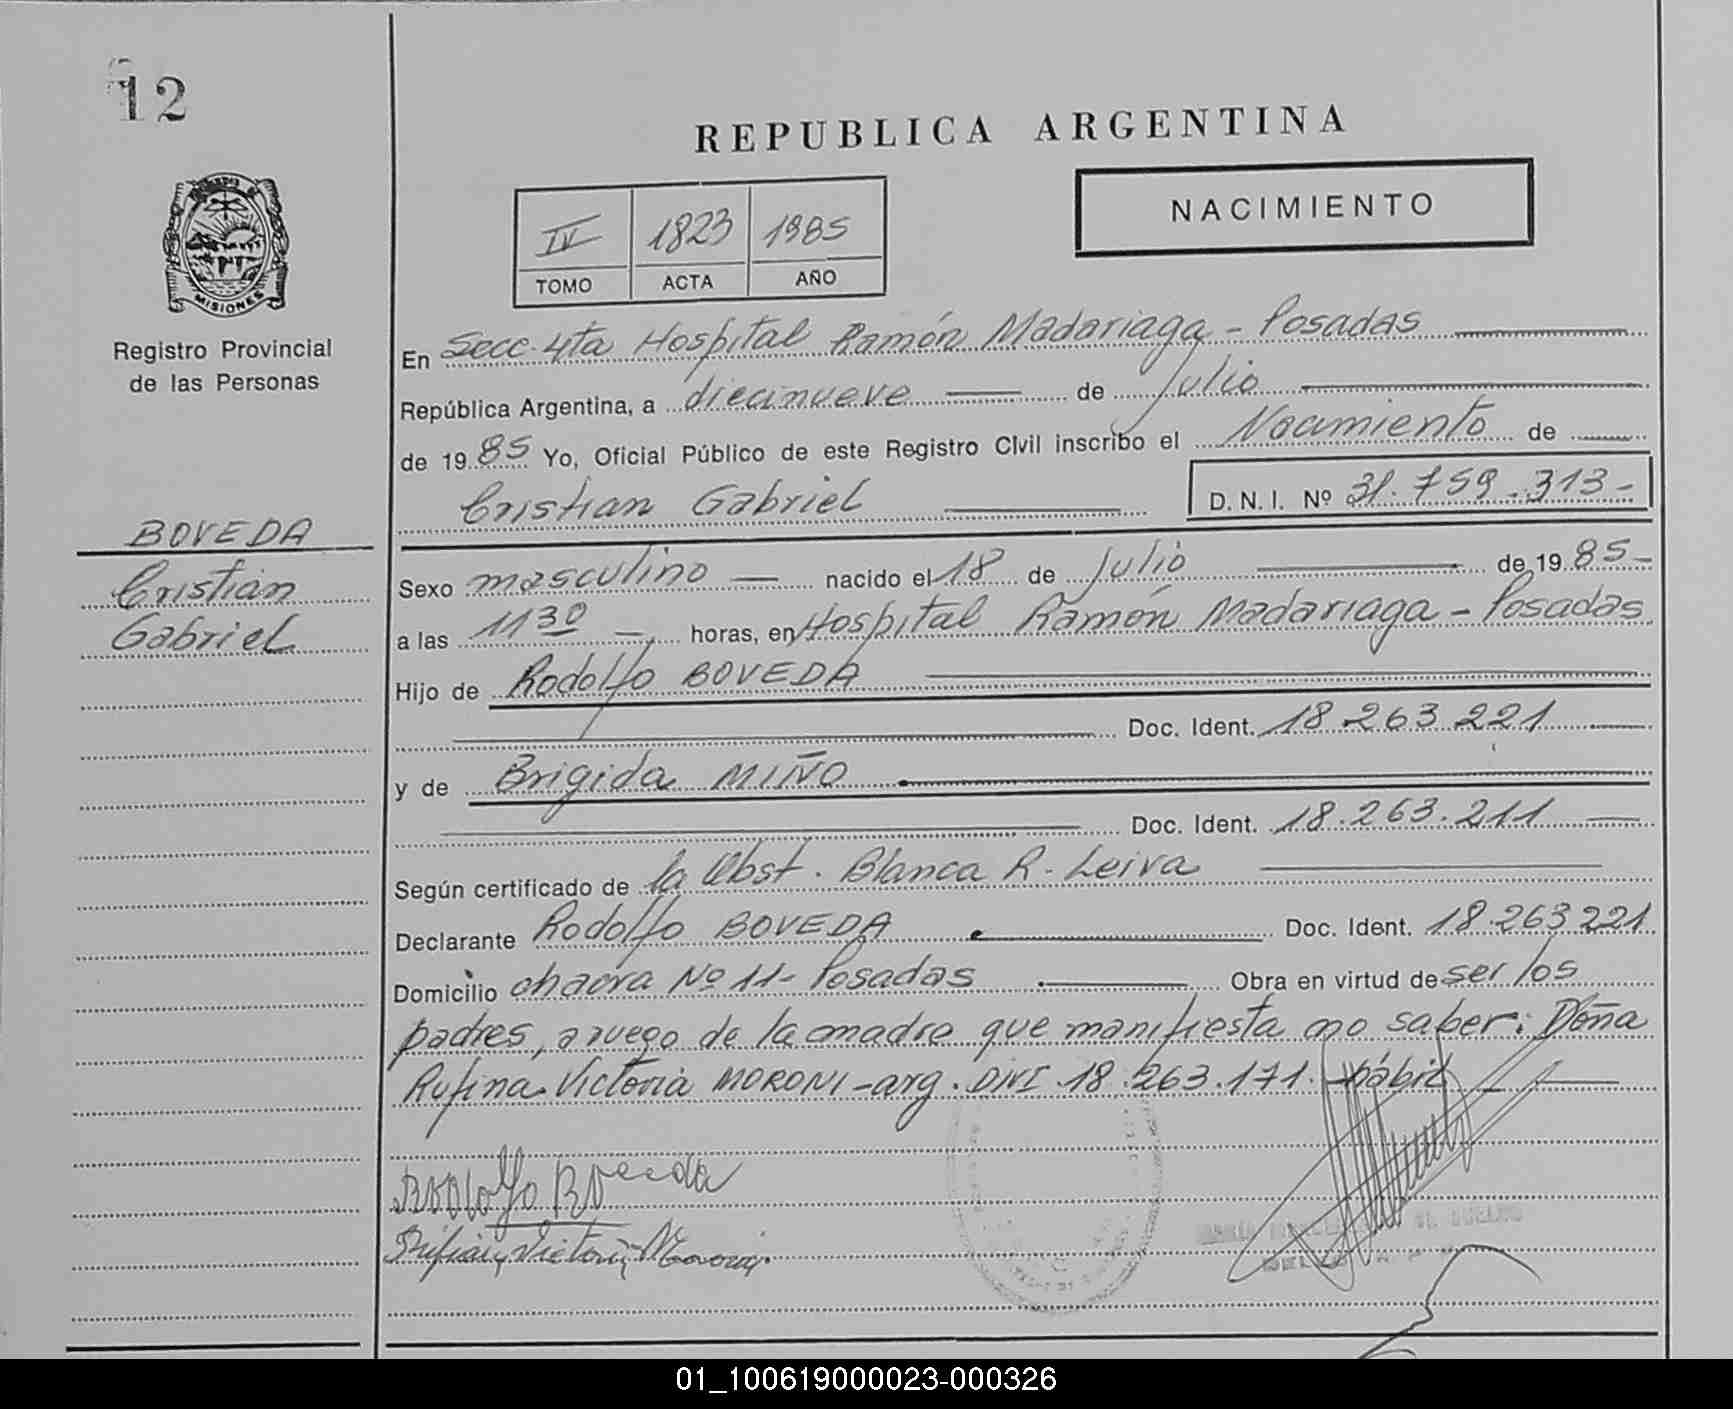 12
REPUBLICA ARGENTINA
NACIMIENTO
IV 1823 1985
TOMO ACTA AÑO
MISIONES
Registro Provincial
de las Personas
BOVEDA
Cristian
Gabriel
En Secc. 4ta Hospital Ramón Madariaga - Posadas
República Argentina, a diecinueve de Julio
de 1985 Yo, Oficial Público de este Registro Civil inscribo el Nacimiento de
Cristian Gabriel D. N. I. Nº 31.759.313-
Sexo masculino nacido el 18 de Julio de 1985-
a las 1130 horas, en Hospital Ramón Madariaga - Posadas.
Hijo de Rodolfo BOVEDA
Doc. Ident. 18.263.221
y de Brigida MIÑO
Doc. Ident. 18.263.211
Según certificado de la Obst. Blanca R. Leiva
Declarante Rodolfo BOVEDA Doc. Ident. 18.263.221
Domicilio chacra Nº 11- Posadas Obra en virtud de ser los
padres, a ruego de la madre que manifiesta no saber: Doña
Rufina Victoria MORONI - arg. DNI 18.263.171. hábil
Rodolfo Boveda
01_100619000023-000326